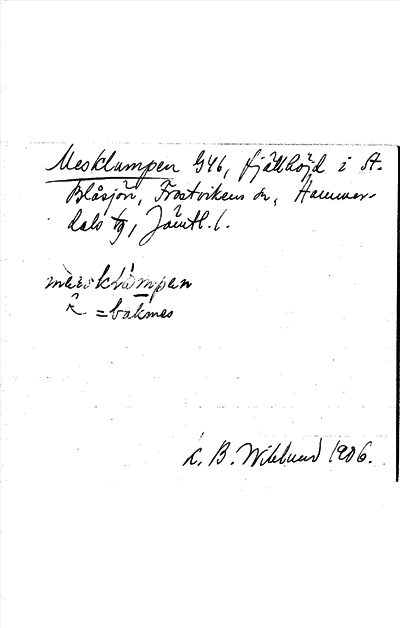 Mesklumpen G46, fjällhöjd i St.
Blåsjön, Frostvikens sn, Hammer-
dals tg, Jämtl. l.
= bakmes
K. B. Wiklund 1906.